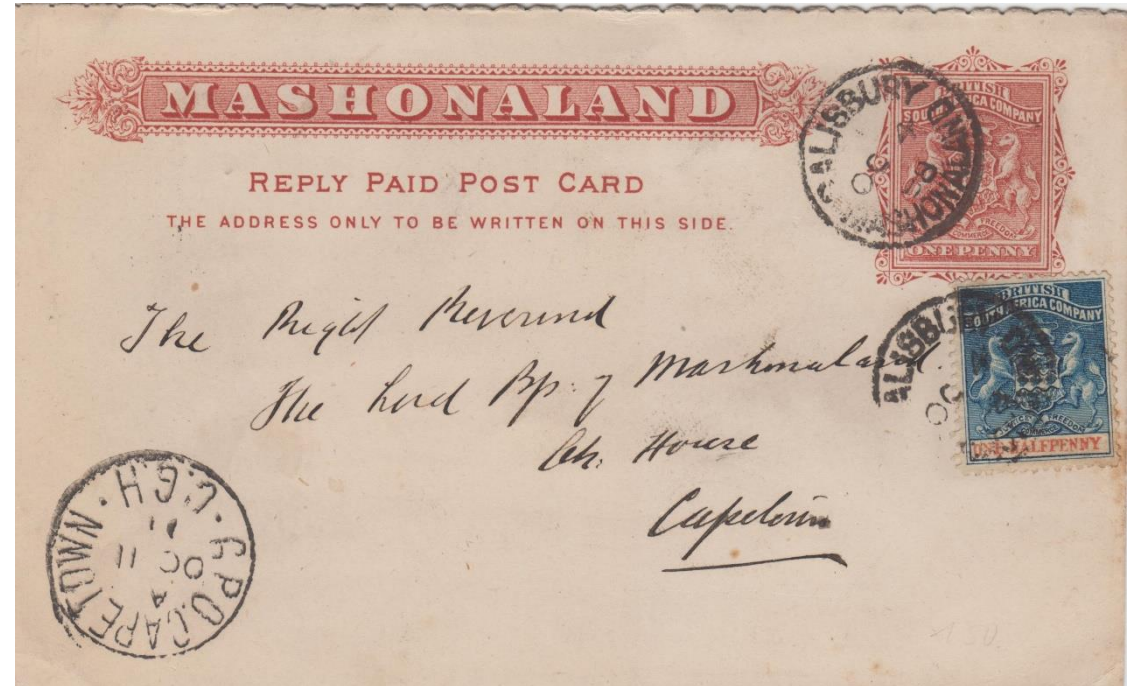 MASHONALAND
REPLY PAID POST CARD
THE ADDRESS ONLY TO BE WRITTEN ON THIS SIDE.
BRITISH
SOUTH AFRICA COMPANY
FREEDOM
ONE PENNY
SALISBURY
MASHONALAND
OC 4
BRITISH
SOUTH AFRICA COMPANY
FREEDOM
ONE HALFPENNY
ALISBU
OC
The Right Reverend
The Lord Bp. of Mashonaland.
Ch. House
Capetown
G.P.O. CAPE TOWN · C.G.H ·
11
OC 11